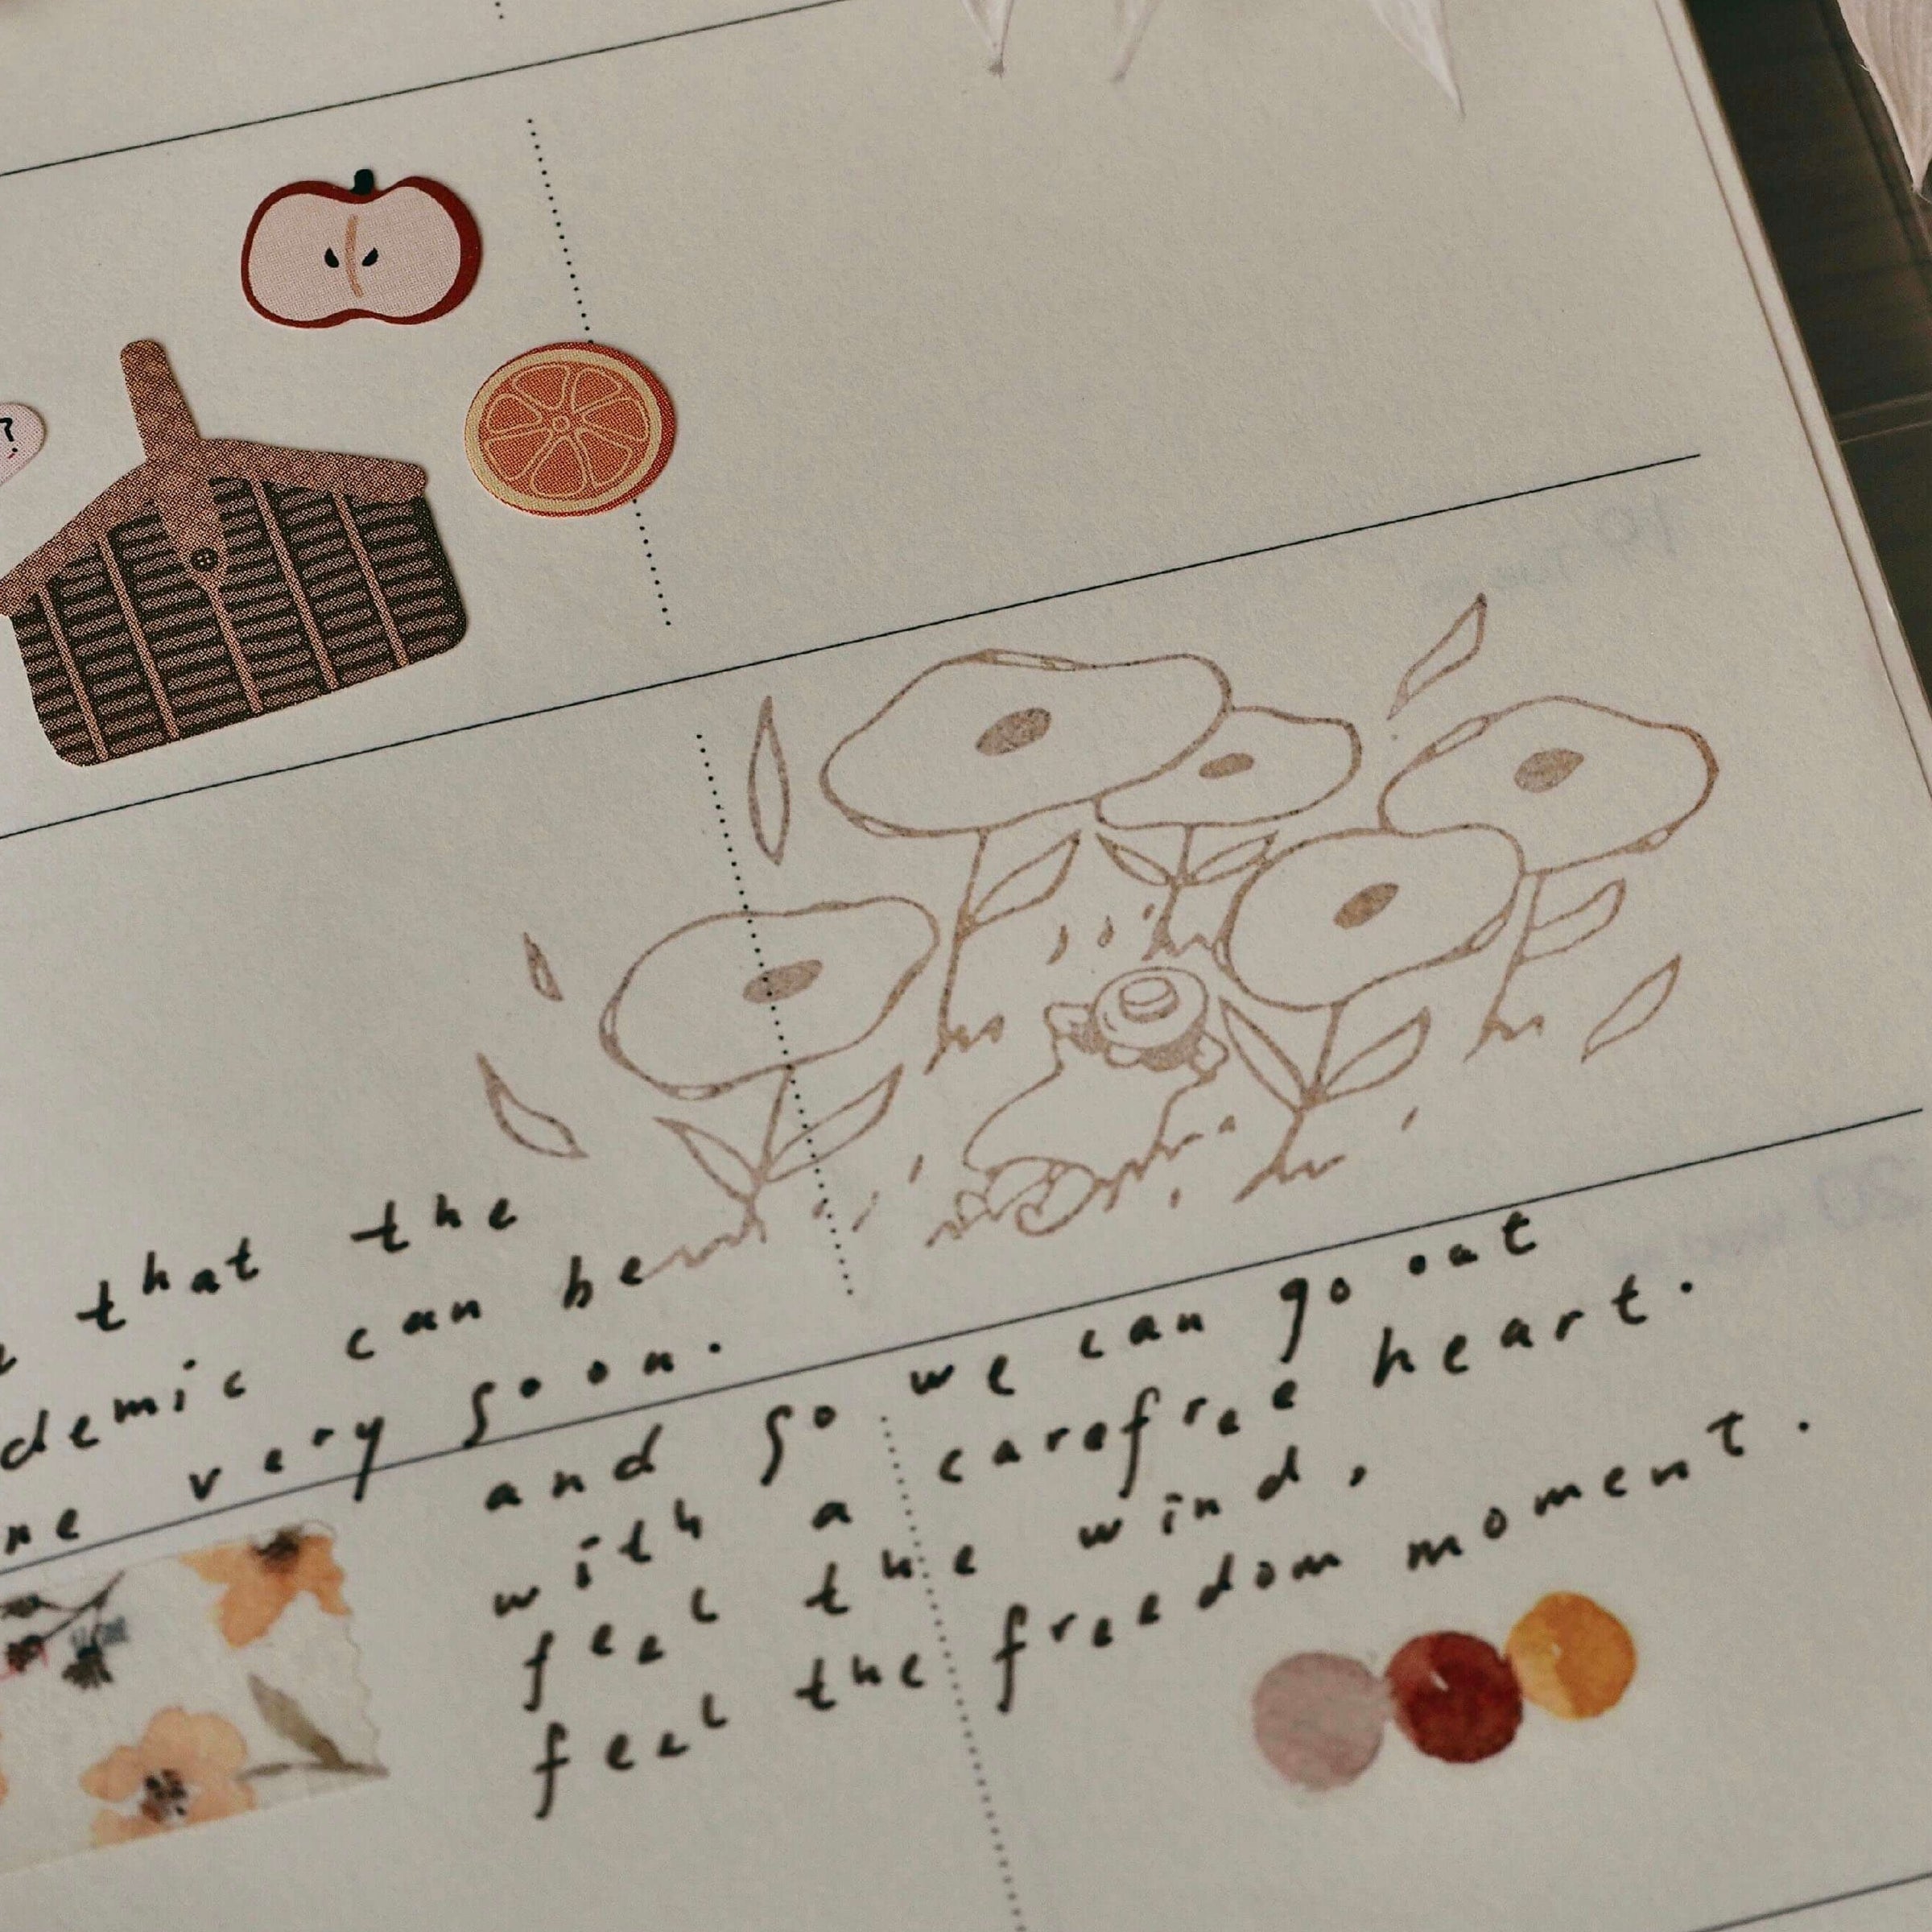 ?
that the
demic can be
ne very soon.
and so we can go out
with a carefree heart.
feel the wind,
feel the freedom moment.